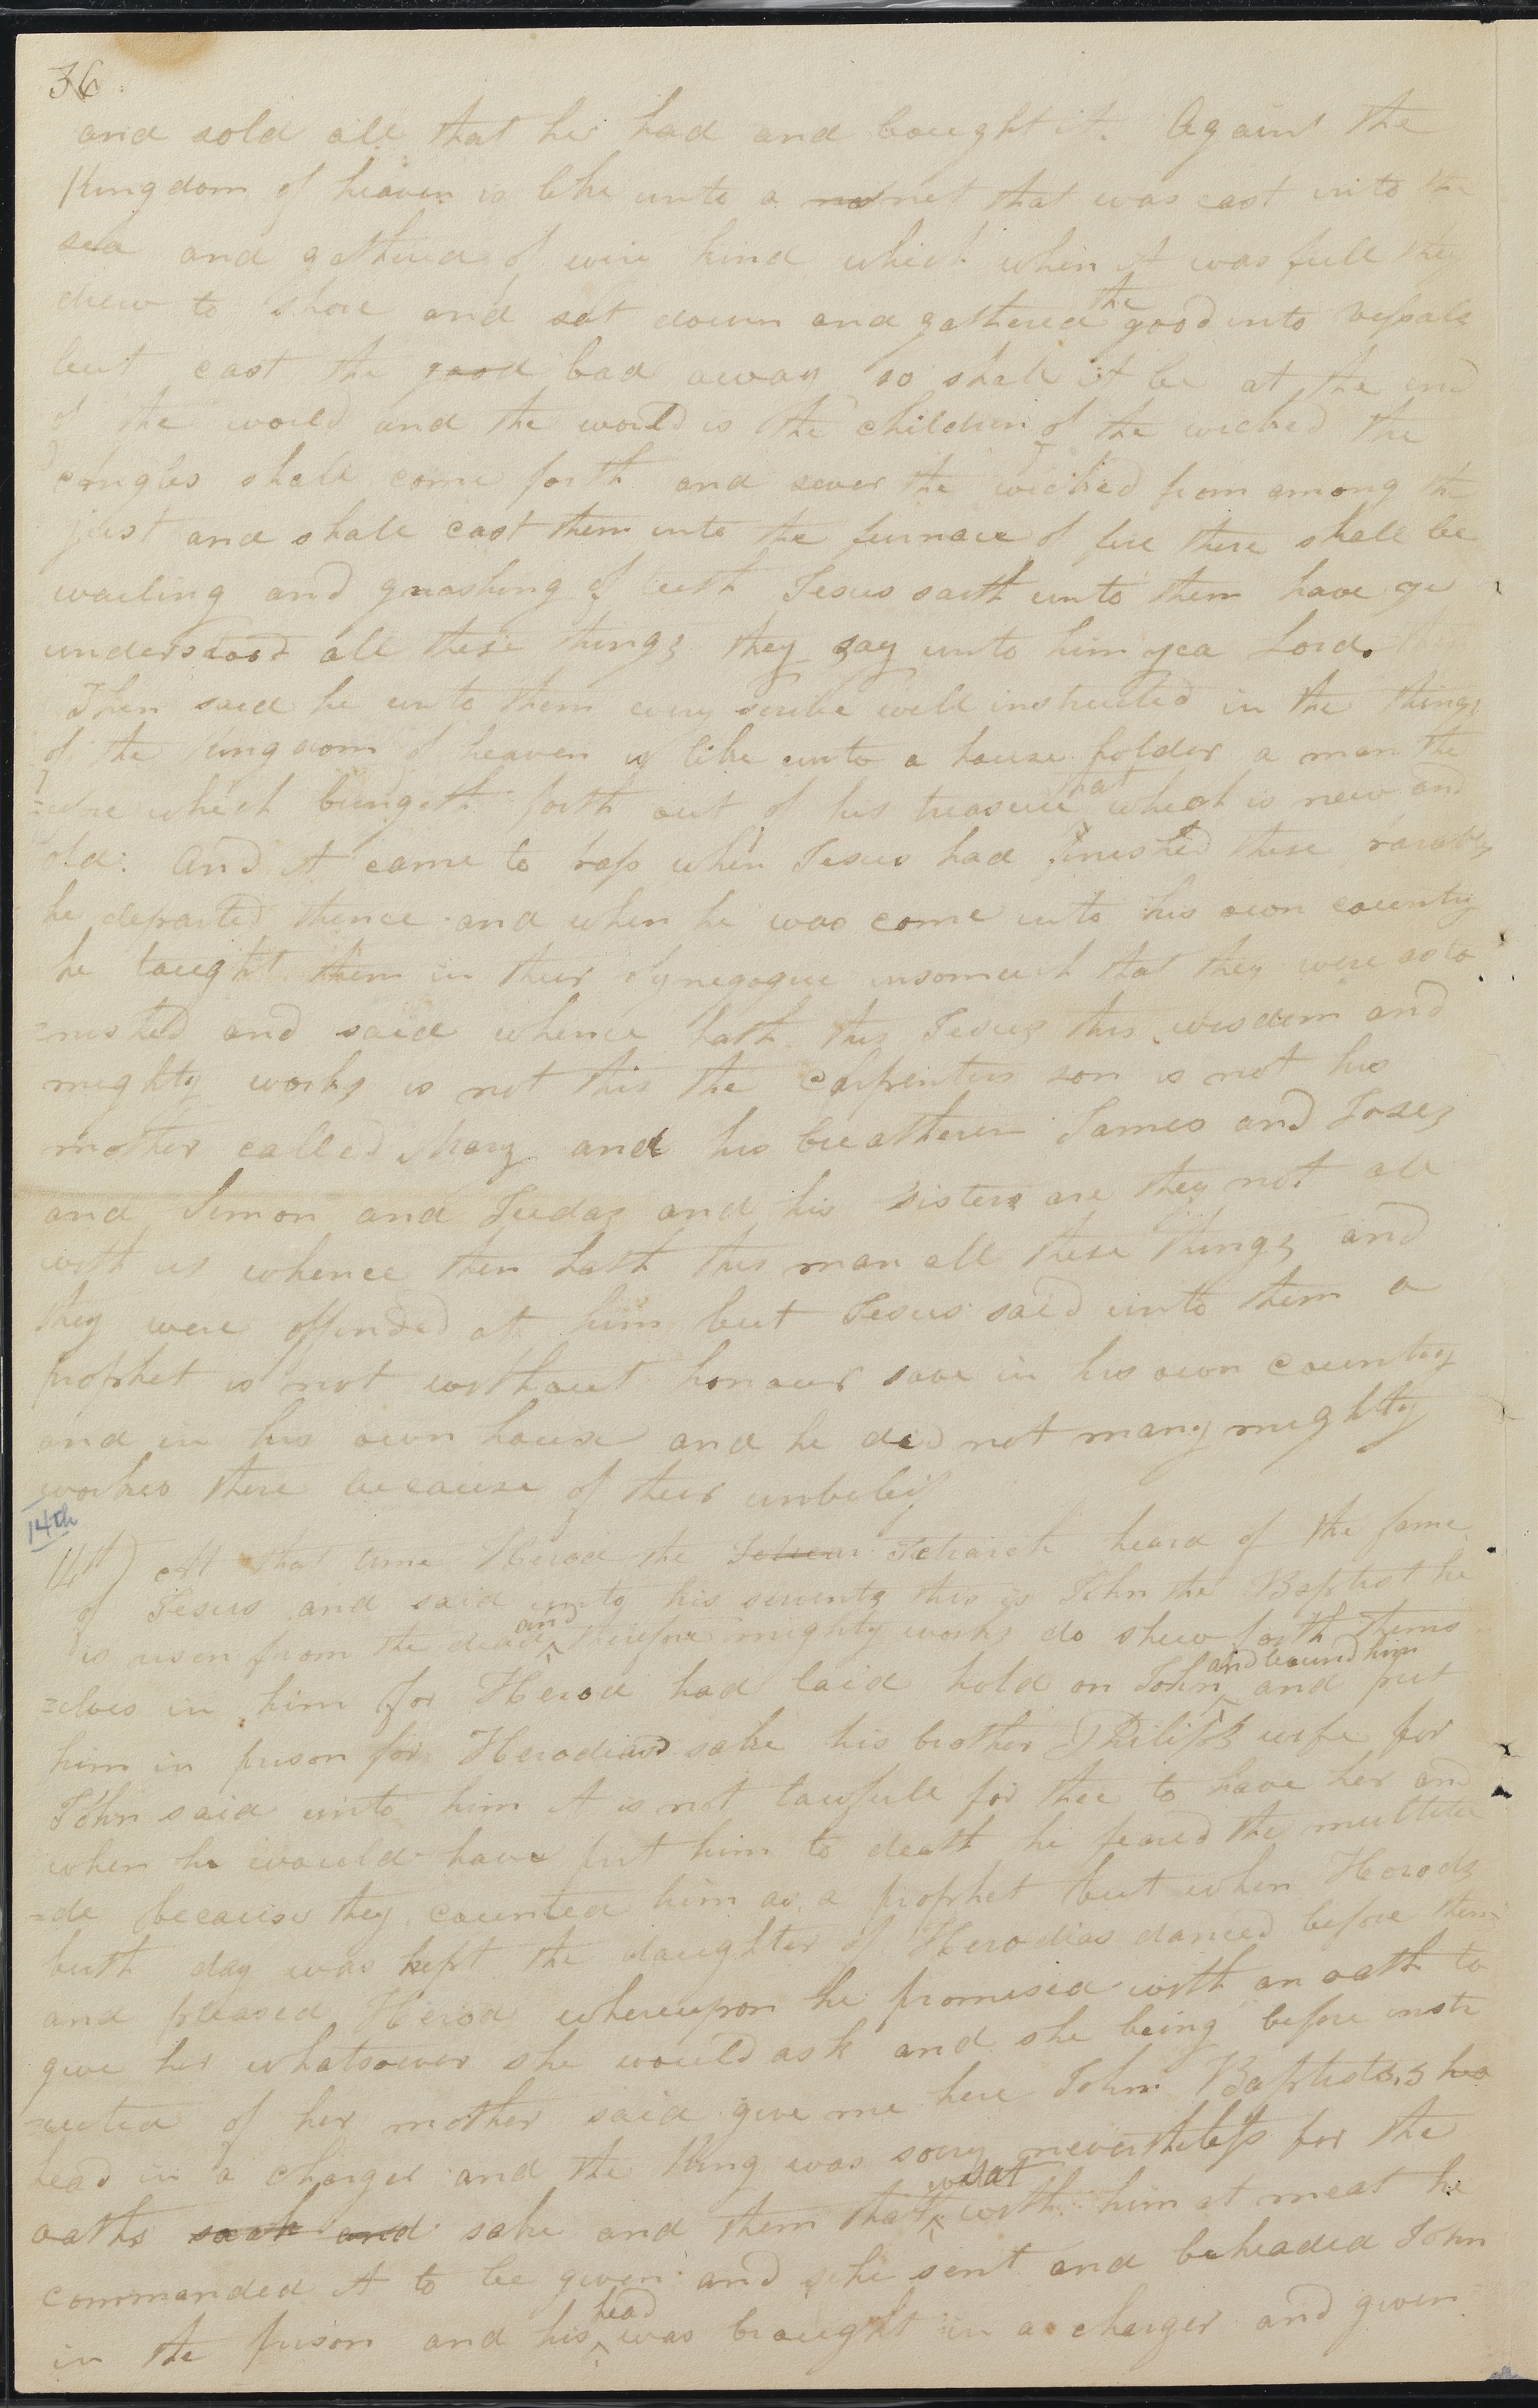 36.
and sold all that he had and bought it. Again the
Kingdom of heaven is like unto a ne net that was cast into the
sea and gathered of every kind which when it was full they
drew to shore and sat down and gathered the good into vessals
but cast the good bad away so shall it be at the end
of the world and the world is the children of the wicked the
angles shall come forth and sever the wicked from among the
just and shall cast them into the furnace of fire there shall be
wailing and gnashing of teeth Jesus saith unto them have ye
understood all these things they say unto him yea Lord.
Then said he unto them every scribe well instructed in the things
of the kingdom of heaven is like unto a house holder a man the
=refore which bringeth forth out of his treasure that which is new and
old: And it came to pass when Jesus had finished these parables
he departed thence and when he was come into his own country
he taught them in their Synegogue insomuch that they were asto
=nished and said whence hath this Jesus this wisdom and
mighty works is not this the carpenters son is not his
mother called Mary and his breatheren James and Joses
and Simon and Judas and his sisters are they not all
with us whence then hath this man all these things and
they were offended at him but Jesus said unto them a
prophet is not without honour save in his own country
and in his own house and he did not many mighty
workes there because of their unbelief
14th
14th) At that time Herod the Tetrar Tetrarch heard of the fame
of Jesus and said unto his servents this is John the Baptist he
is risen from the dead and therefore mighty works do shew forth thems
=elves in him for Herod had laid hold on John and bound him and put
him in prison for Herodias sake his brother Philips wife for
John said unto him it is not lawfull for thee to have her and
when he would have put him to death he feared the multitu
=de because they counted him as a prophet but when Herods
birth day was kept the daughter of Herodias danced before them
and pleased Herod whereupon he promised with an oath to
give her whatsoever she would ask and she being before instr
=ucted of her mother said give me here John Baptists his
head in a charger and the King was sorry nevertheless for the
oaths saak and sake and them that sat with him at meat he
commanded it to be given and he sent and beheaded John
in the prison and his head was braught in a charger and given